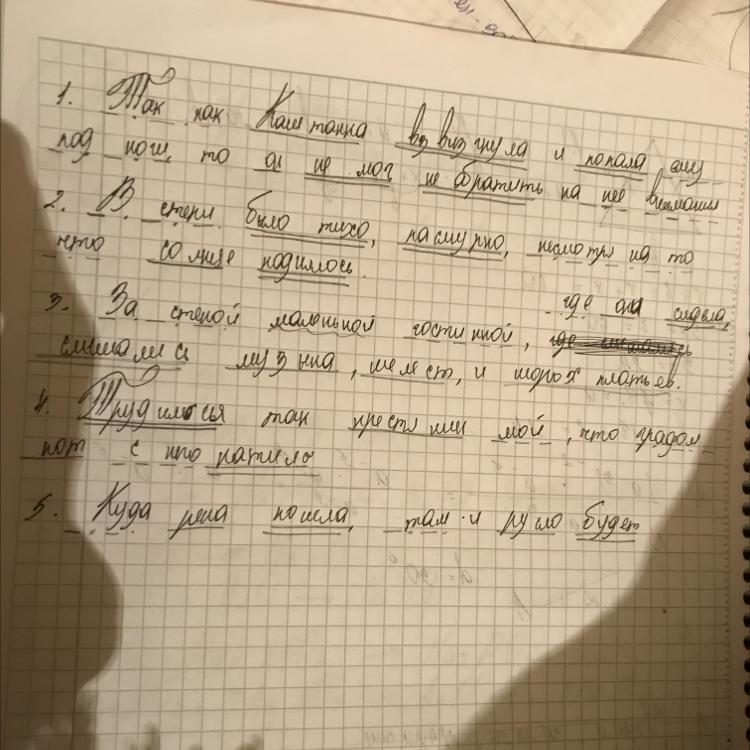 1. Так как Каштанка взвизгнула и попала ему
под ноги, то он не мог не обратить на неё внимания
2. В степи было тихо, пасмурно, несмотря на то
что солнце подилось.
3. За стеной маленькой гостинной, где она сидела,
слышались музыка, шелест, и шорох платьев.
4. Трудился так крестьянин мой, что градом
пот с него катился
5. Куда река пошла, там и русло будет